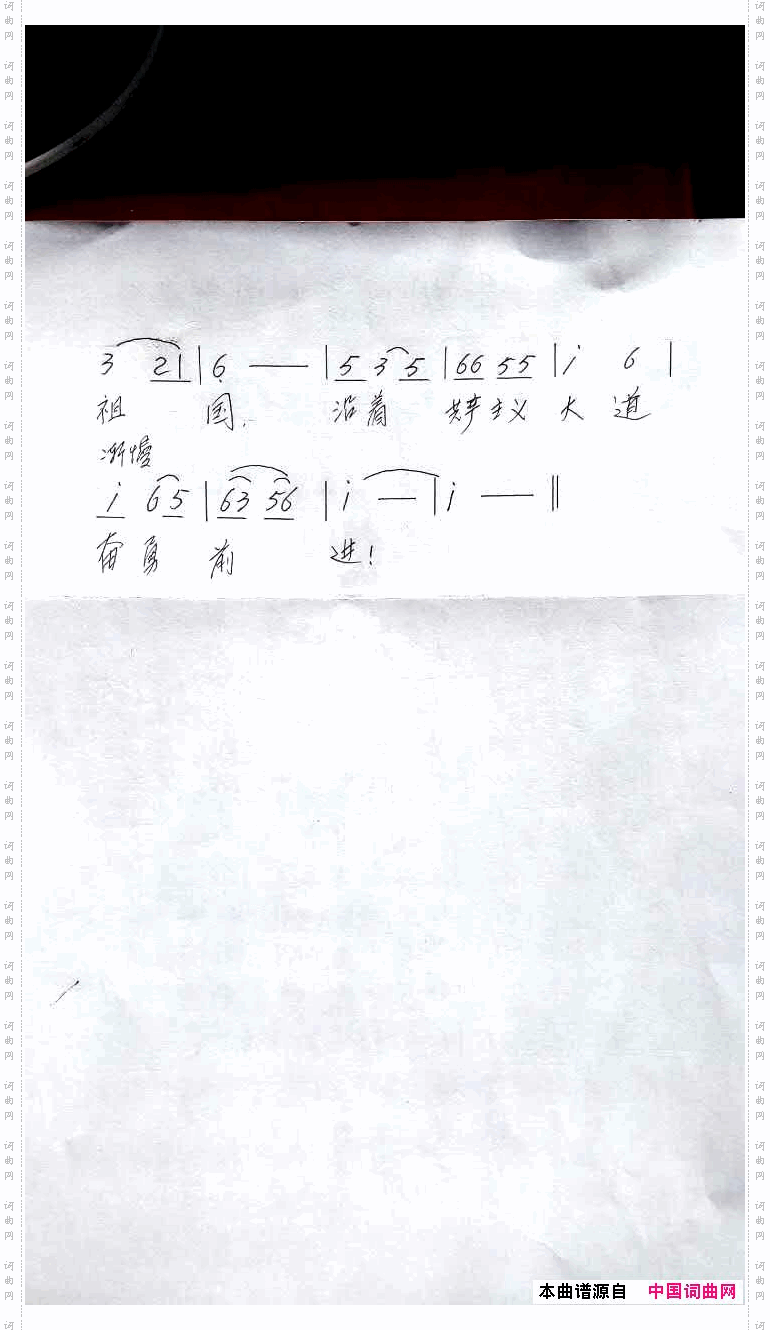 3 21 | 6 — | 5 3 5 | 66 55 | i 6 |
祖 国, 沿着 共产主义 大 道
渐慢
i 65 | 63 56 | i — | i — ‖
奋 勇 前 进!
本曲谱源自 中国词曲网